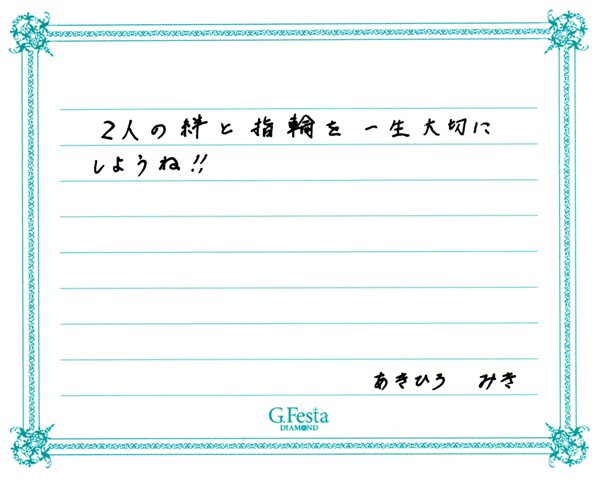 2人の絆と指輪を一生大切に
しようね!!
あきひろ みき
G.Festa
DIAMOND